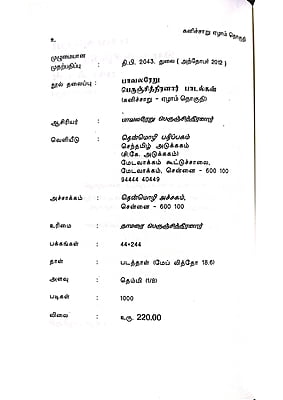 ௨. கனிச்சாறு ஏழாம் தொகுதி
முழுமையான
முதற்பதிப்பு : தி.பி. 2043. துலை ( அந்தோபர் 2012 )
நூல் தலைப்பு : பாவலரேறு
பெருஞ்சித்திரனார் பாடல்கள்
(கனிச்சாறு - ஏழாம் தொகுதி)
ஆசிரியர் : பாவலரேறு பெருஞ்சித்திரனார்
வெளியீடு : தென்மொழி பதிப்பகம்
செந்தமிழ் அடுக்ககம்
(சி.கே. அடுக்ககம்)
மேடவாக்கம் கூட்டுச்சாலை,
மேடவாக்கம், சென்னை - 600 100
94444 40449
அச்சாக்கம் : தென்மொழி அச்சகம்,
சென்னை - 600 100
உரிமை : தாமரை பெருஞ்சித்திரனார்
பக்கங்கள் : 44+244
தாள் : படத்தாள் (மேப் லித்தோ 18.6)
அளவு : தெம்மி (1/8)
படிகள் : 1000
விலை : உரு. 220.00